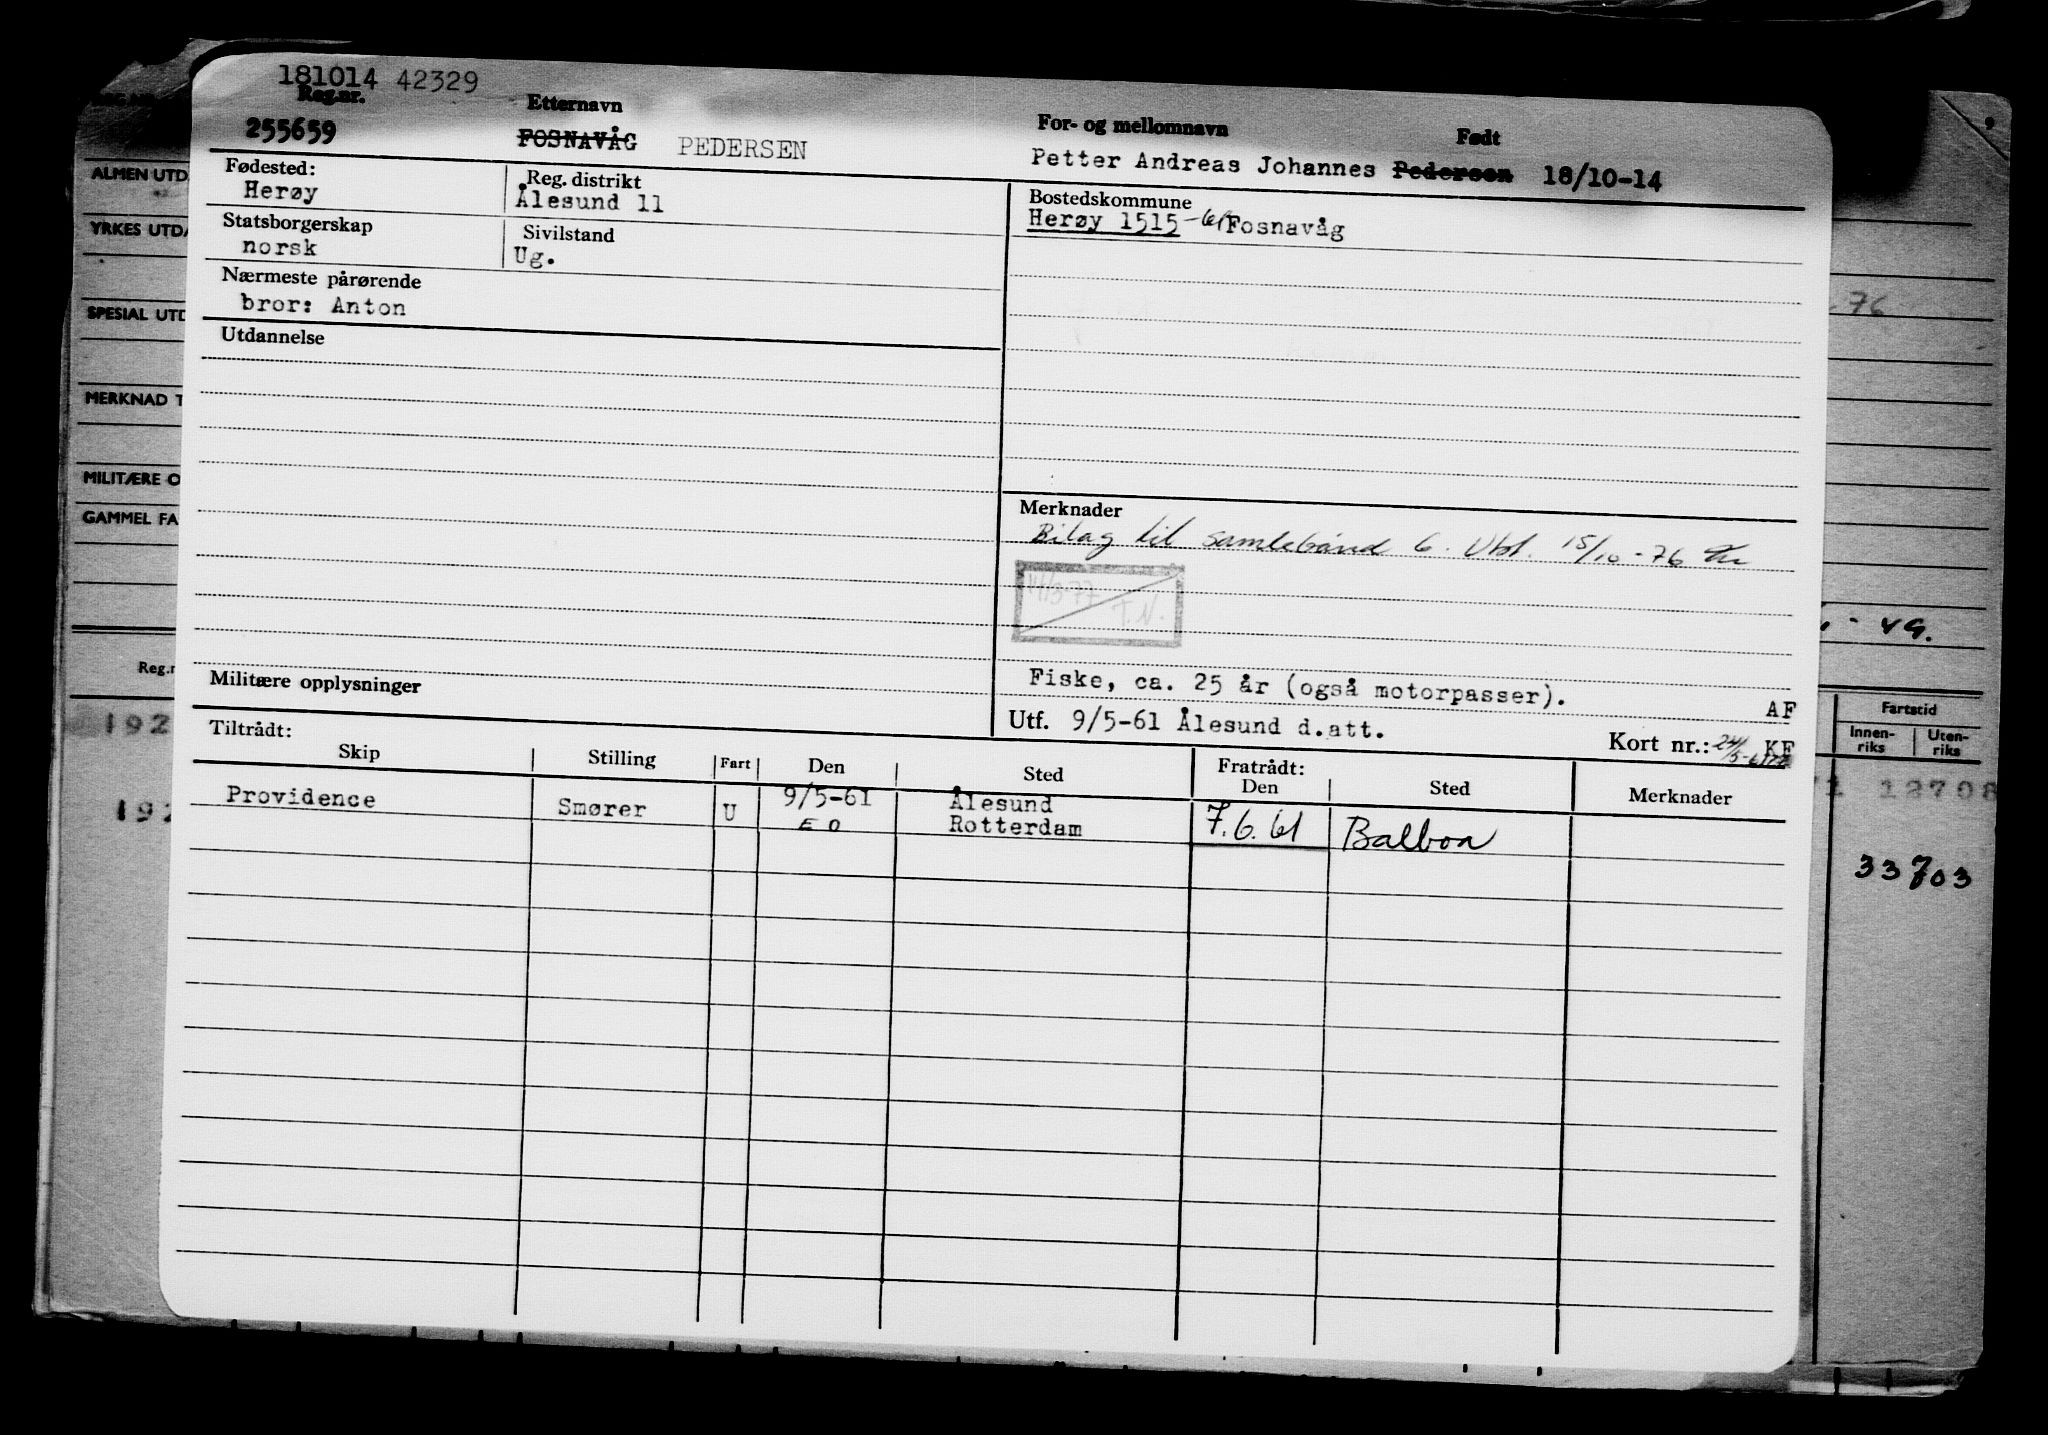 181014 42329
Reg.nr. Etternavn For- og mellomnavn Født
255659 FOSNAVÅG PEDERSEN Petter Andreas Johannes Pedersen 18/10-14
Fødested: Reg. distrikt Bostedskommune
Herøy Ålesund 11 Herøy 1515 -61 Fosnavåg
Statsborgerskap Sivilstand
norsk Ug.
Nærmeste pårørende
bror: Anton
Utdannelse
Merknader
Bilag til samlebånd 6. Utst. 15/10-76
11/3-77 T.N.
Fiske, ca. 25 år (også motorpasser).
Militære opplysninger AF
Utf. 9/5-61 Ålesund d.att. Kort nr.: KF
Tiltrådt: Fratrådt:
Skip Stilling Fart Den Sted Den Sted Merknader
Providence Smører U 9/5-61 Ålesund 7.6.61 Balboa
E O Rotterdam
ALMEN UTD
YRKES UTDA
SPESIAL UTD
MERKNAD T
MILITÆRE O
GAMMEL FA
Reg.n
192
192
9
- 76
- 49.
Fartstid
Innen-riks Uten-riks
1 12708
33703